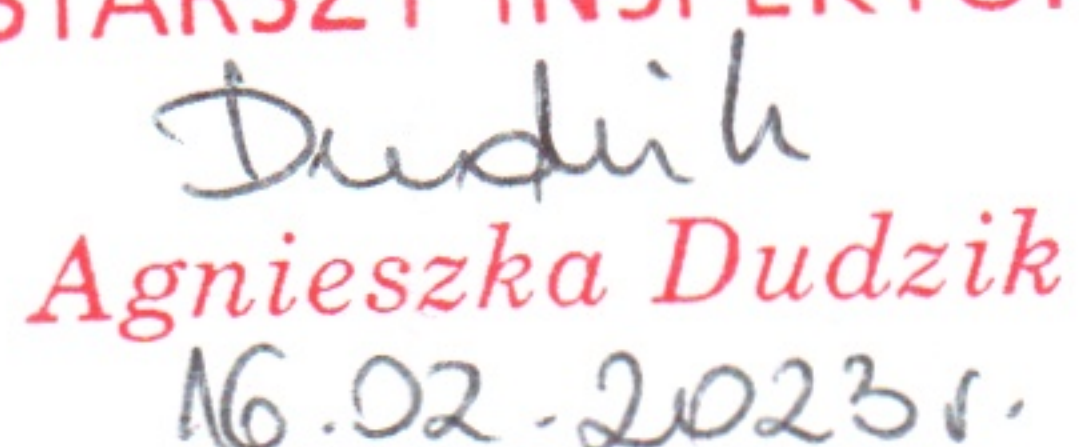 STARSZY INSPEKTOR
Dudzik
Agnieszka Dudzik
16.02.2023 r.